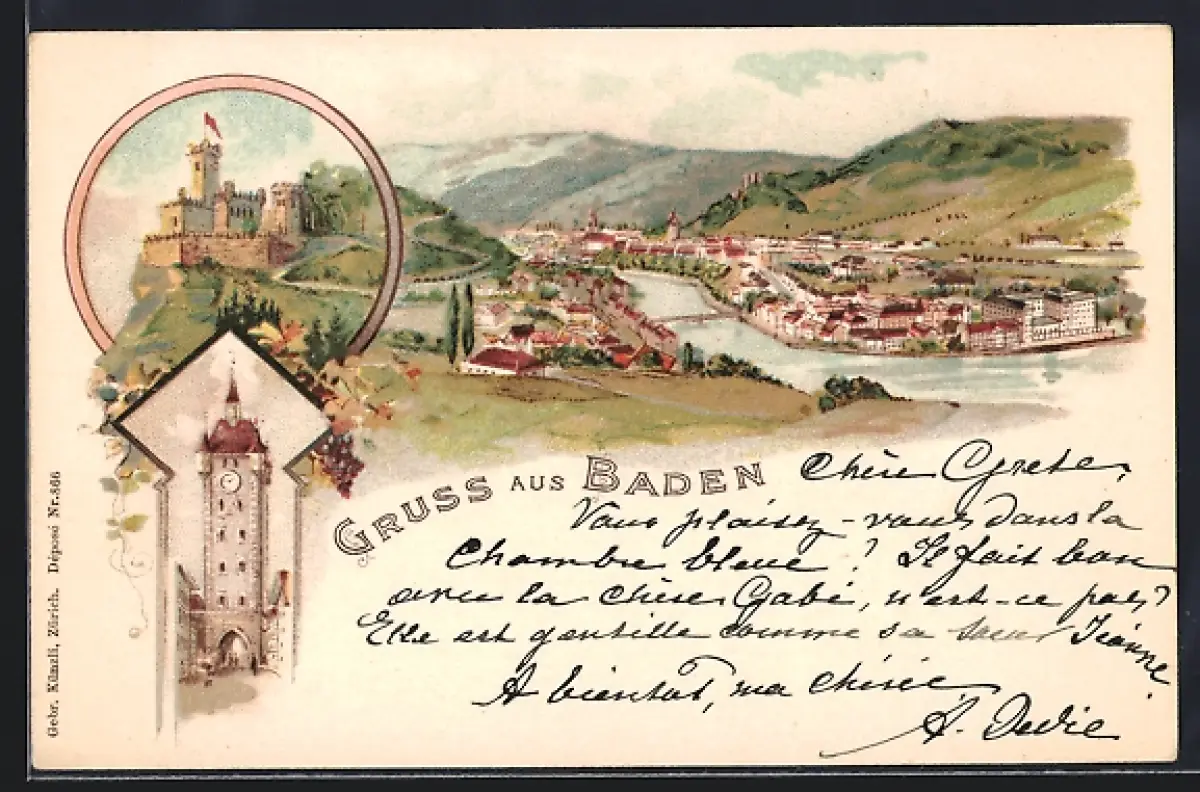 GRUSS AUS BADEN
Chère Grete,
Vous plaisez-vous dans la
Chambre bleue? Il fait bon
avec la chère Gabi, n'est-ce pas?
Elle est gentille comme sa sœur Jeanne.
A bientôt, ma chérie,
A.
Gebr. Künzli, Zürich. Déposé Nr. 866